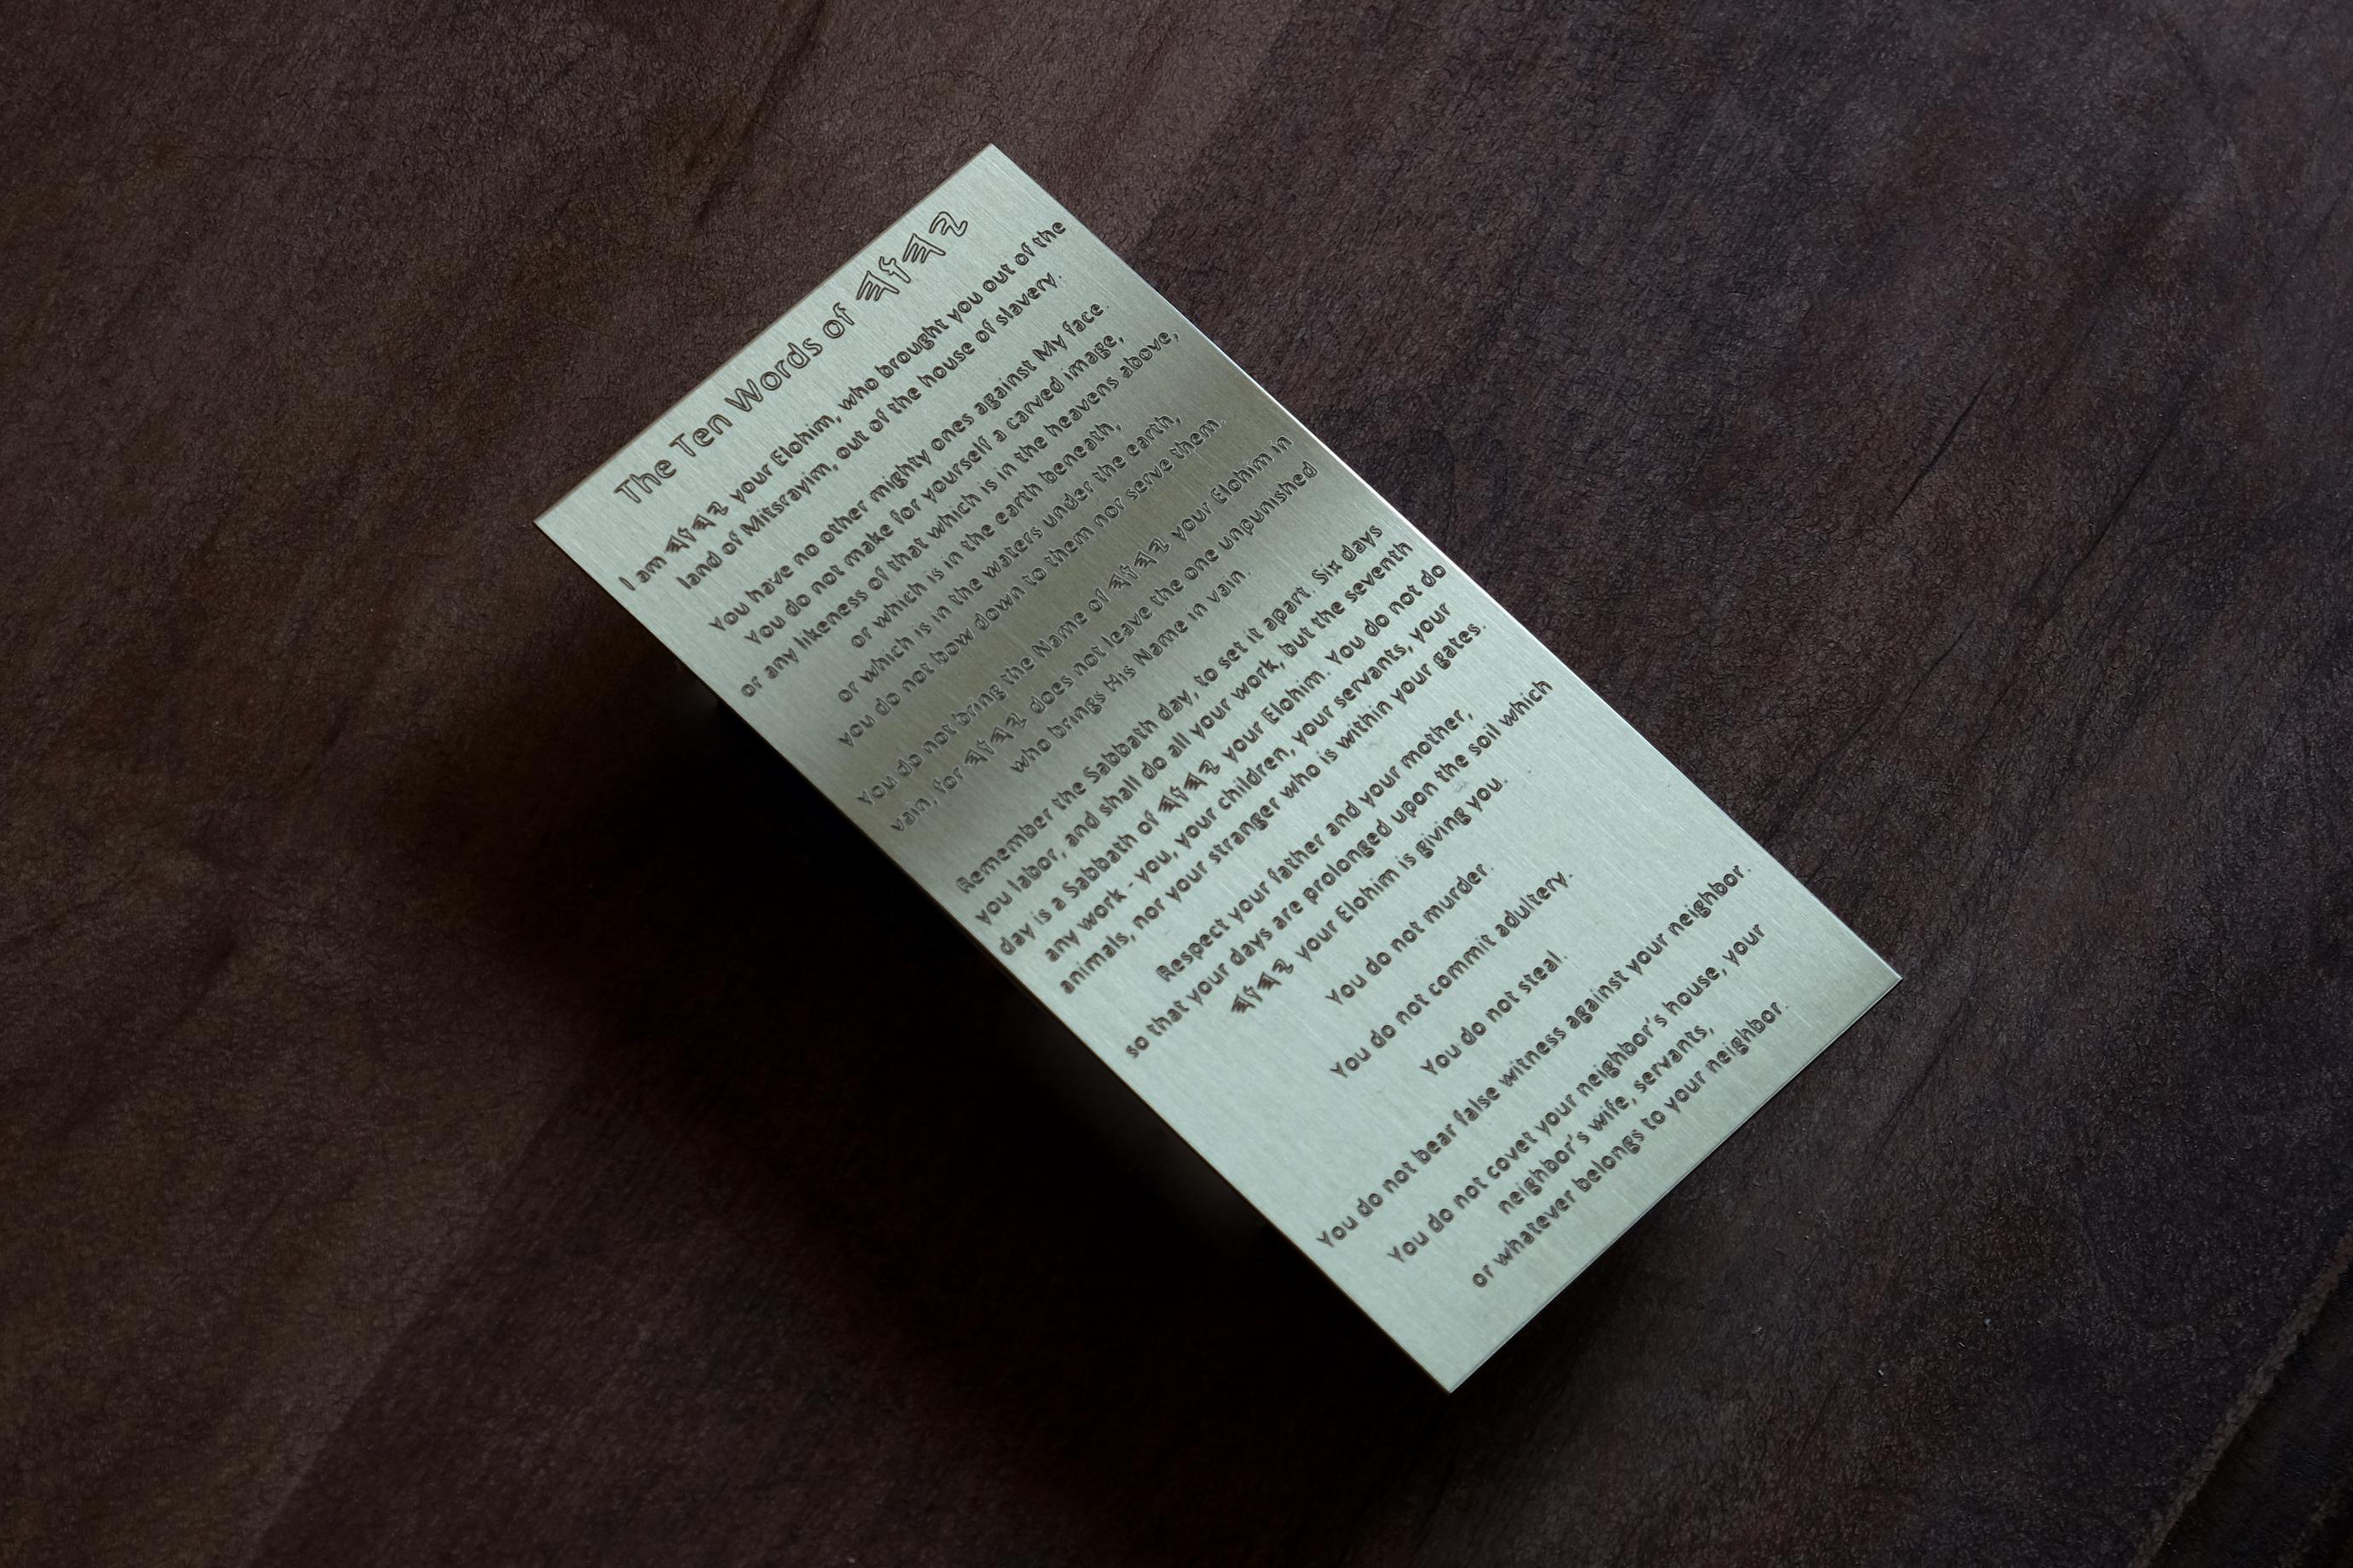 The Ten Words of 𐤉𐤄𐤅𐤄
I am 𐤉𐤄𐤅𐤄 your Elohim, who brought you out of the
land of Mitsrayim, out of the house of slavery.
You have no other mighty ones against My face.
You do not make for yourself a carved image,
or any likeness of that which is in the heavens above,
or which is in the earth beneath,
or which is in the waters under the earth,
you do not bow down to them nor serve them.
You do not bring the Name of 𐤉𐤄𐤅𐤄 your Elohim in
vain, for 𐤉𐤄𐤅𐤄 does not leave the one unpunished
who brings His Name in vain.
Remember the Sabbath day, to set it apart. Six days
you labor, and shall do all your work, but the seventh
day is a Sabbath of 𐤉𐤄𐤅𐤄 your Elohim. You do not do
any work - you, your children, your servants, your
animals, nor your stranger who is within your gates.
Respect your father and your mother,
so that your days are prolonged upon the soil which
𐤉𐤄𐤅𐤄 your Elohim is giving you.
You do not murder.
You do not commit adultery.
You do not steal.
You do not bear false witness against your neighbor.
You do not covet your neighbor's house, your
neighbor's wife, servants,
or whatever belongs to your neighbor.